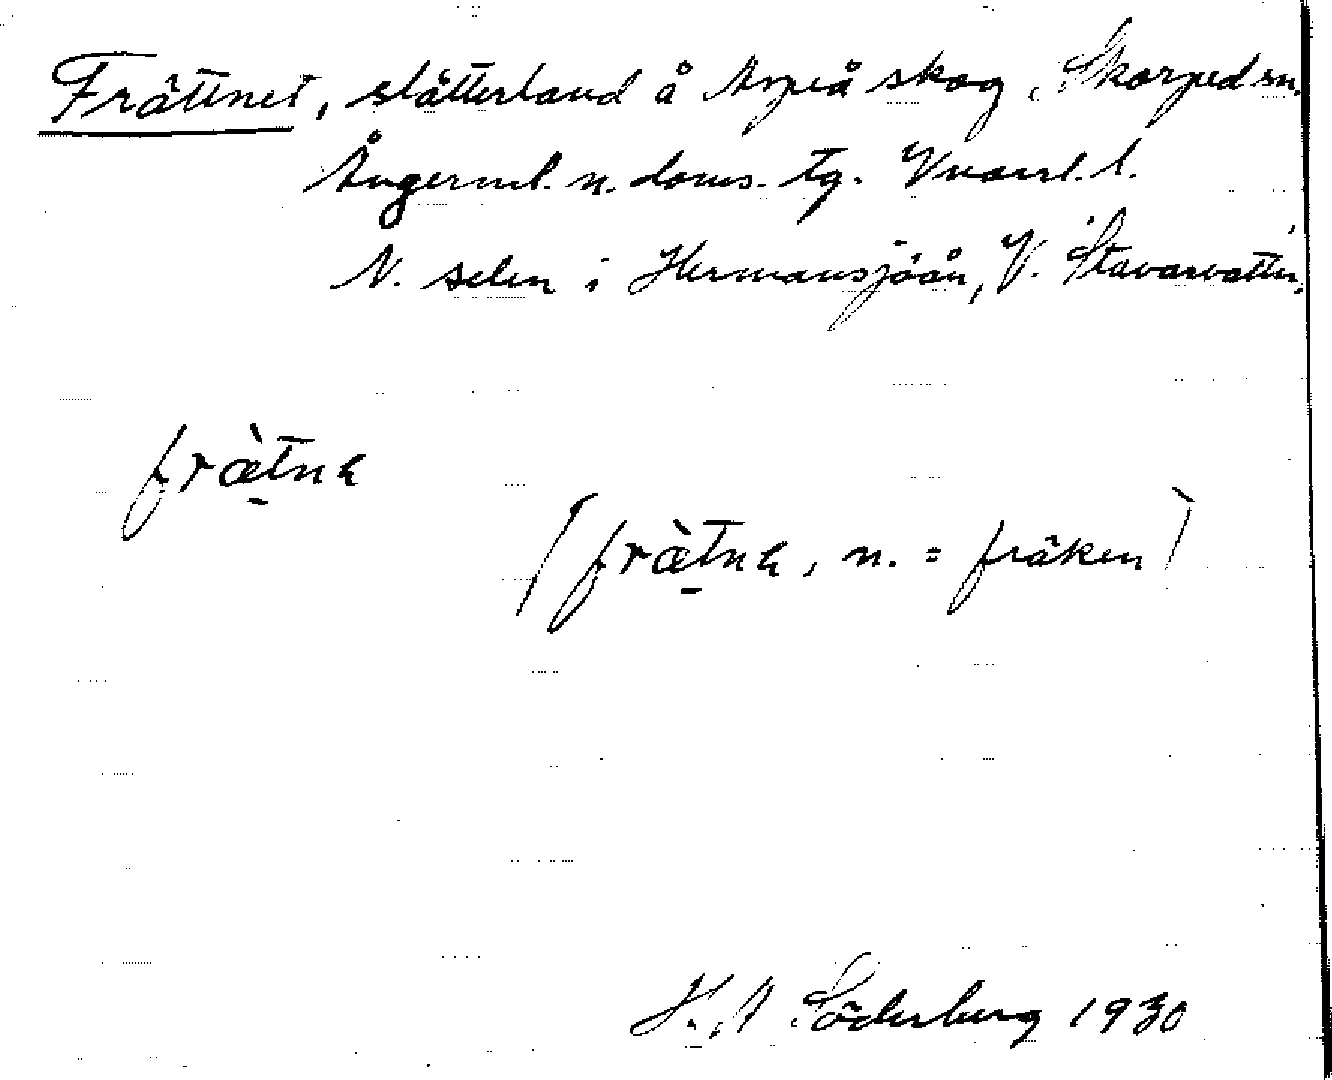 Frättnet, slåtterland å Arpeå skog, Skorped sn.
Ångerml. n. doms. tg. Vnorrl. l.
N. selen i Hermansjöån, V. Stavarvattn.
frætnɐ
(frætnɐ, n. = fräken)
H. A Söderberg 1930